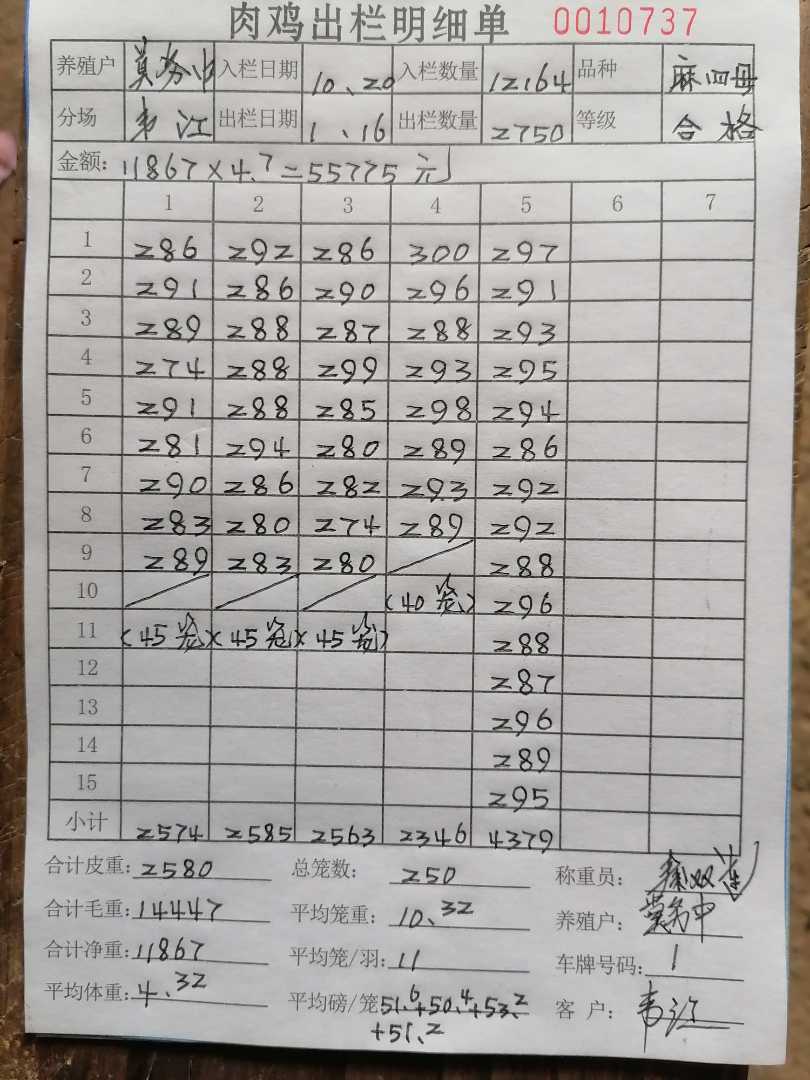 肉鸡出栏明细单 0010737
养殖户 黄务中 入栏日期 10、20 入栏数量 12164 品种 麻四母
分场 韦江 出栏日期 1、16 出栏数量 2750 等级 合格
金额: 11867×4.7=55775元
1 2 3 4 5 6 7
1 286 292 286 300 297
2 291 286 290 296 291
3 289 288 287 288 293
4 274 288 299 293 295
5 291 288 285 298 294
6 281 294 280 289 286
7 290 286 282 293 292
8 283 280 274 289 292
9 289 283 280 288
10 (40笼) 296
11 (45笼) (45笼) (45笼) 288
12 287
13 296
14 289
15 295
小计 2574 2585 2563 2346 4379
合计皮重: 2580 总笼数: 250 称重员:
合计毛重: 14447 平均笼重: 10.32 养殖户: 黄务中
合计净重: 11867 平均笼/羽: 11 车牌号码: 1
平均体重: 4.32 平均磅/笼 51.6+50.4+53.2 客 户: 韦江
+51.2